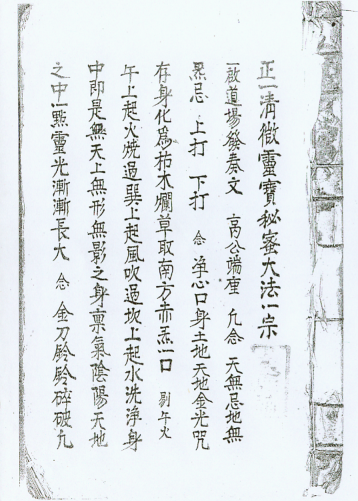 正一清微靈寶秘蜜大法一宗
一啟道場發奏文 高公端座 九念 天無忌地無
炁忌 上打 下打 念 净心口身土地天地金光咒
存身化為枯木爛草取南方赤炁一口 剔午火
午上起火燒過巽上起風吹過坎上起水洗淨身
中即是無天上無形無影之身禀氣陰陽天地
之中一點靈光漸漸長大 念 金刀鈴鈴碎破九